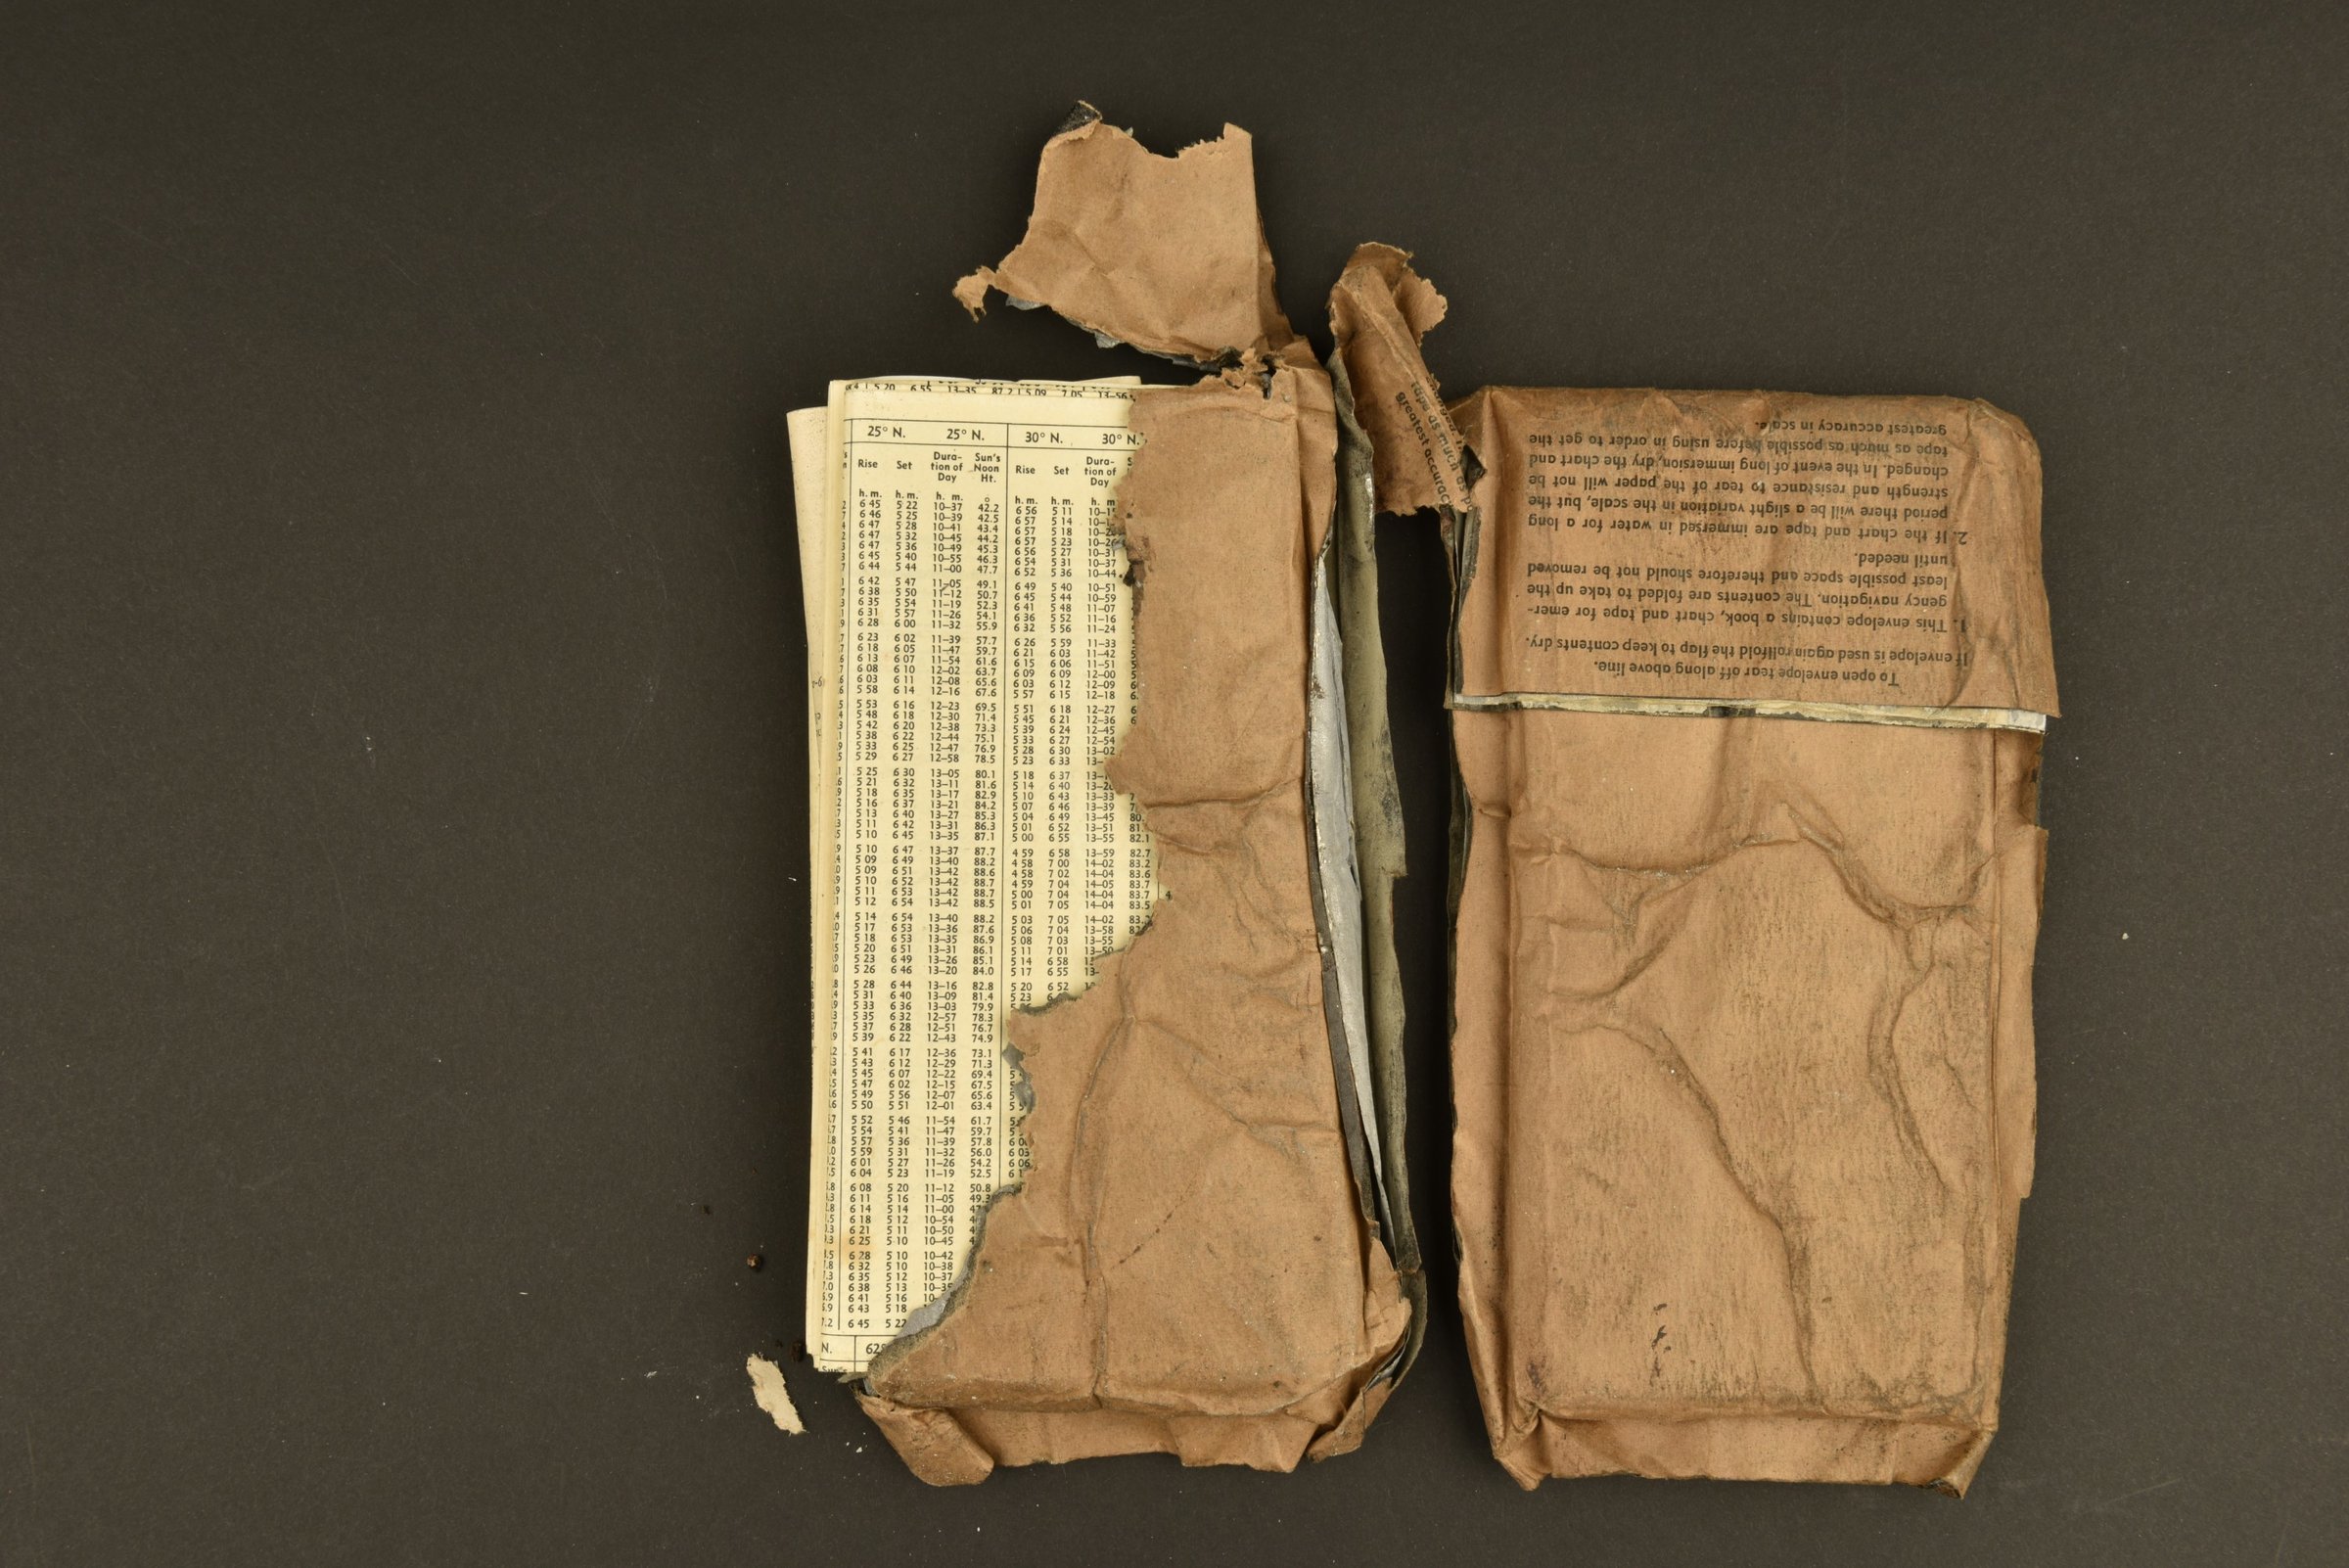 5 20 6 55 13–35 87.2 5 09 7 05 13–56
25° N. 25° N. 30° N. 30° N.
Rise Set Dura- Sun's Rise Set Dura-
tion of Noon tion of
Day Ht. Day
h. m. h. m. h. m. ° h. m. h. m. h. m
6 45 5 22 10–37 42.2 6 56 5 11
6 46 5 25 10–39 42.5 6 57 5 14
6 47 5 28 10–41 43.4 6 57 5 18
6 47 5 32 10–45 44.2 6 57 5 23 10–26
6 47 5 36 10–49 45.3 6 56 5 27 10–31
6 45 5 40 10–55 46.3 6 54 5 31 10–37
6 44 5 44 11–00 47.7 6 52 5 36 10–44
6 42 5 47 11–05 49.1 6 49 5 40 10–51
6 38 5 50 11–12 50.7 6 45 5 44 10–59
6 35 5 54 11–19 52.3 6 41 5 48 11–07
6 31 5 57 11–26 54.1 6 36 5 52 11–16
6 28 6 00 11–32 55.9 6 32 5 56 11–24
6 23 6 02 11–39 57.7 6 26 5 59 11–33
6 18 6 05 11–47 59.7 6 21 6 03 11–42
6 13 6 07 11–54 61.6 6 15 6 06 11–51
6 08 6 10 12–02 63.7 6 09 6 09 12–00
6 03 6 11 12–08 65.6 6 03 6 12 12–09
5 58 6 14 12–16 67.6 5 57 6 15 12–18
5 53 6 16 12–23 69.5 5 51 6 18 12–27
5 48 6 18 12–30 71.4 5 45 6 21 12–36
5 42 6 20 12–38 73.3 5 39 6 24 12–45
5 38 6 22 12–44 75.1 5 33 6 27 12–54
5 33 6 25 12–47 76.9 5 28 6 30 13–02
5 29 6 27 12–58 78.5 5 23 6 33 13–
5 25 6 30 13–05 80.1 5 18 6 37
5 21 6 32 13–11 81.6 5 14 6 40 13–26
5 18 6 35 13–17 82.9 5 10 6 43 13–33
5 16 6 37 13–21 84.2 5 07 6 46 13–39
5 13 6 40 13–27 85.3 5 04 6 49 13–45 80.
5 11 6 42 13–31 86.3 5 01 6 52 13–51 81.
5 10 6 45 13–35 87.1 5 00 6 55 13–55 82.1
5 10 6 47 13–37 87.7 4 59 6 58 13–59 82.7
5 09 6 49 13–40 88.2 4 58 7 00 14–02 83.2
5 09 6 51 13–42 88.6 4 58 7 02 14–04 83.6
5 10 6 52 13–42 88.7 4 59 7 04 14–05 83.7
5 11 6 53 13–42 88.7 5 00 7 04 14–04 83.7 4
5 12 6 54 13–42 88.5 5 01 7 05 14–04 83.5
5 14 6 54 13–40 88.2 5 03 7 05 14–02 83.
5 17 6 53 13–36 87.6 5 06 7 04 13–58
5 18 6 53 13–35 86.9 5 08 7 03 13–55
5 20 6 51 13–31 86.1 5 11 7 01 13–50
5 23 6 49 13–26 85.1 5 14 6 58
5 26 6 46 13–20 84.0 5 17 6 55 13–
5 28 6 44 13–16 82.8 5 20 6 52
5 31 6 40 13–09 81.4 5 23
5 33 6 36 13–03 79.9
5 35 6 32 12–57 78.3
5 37 6 28 12–51 76.7
5 39 6 22 12–43 74.9
5 41 6 17 12–36 73.1
5 43 6 12 12–29 71.3
5 45 6 07 12–22 69.4
5 47 6 02 12–15 67.5
5 49 5 56 12–07 65.6
5 50 5 51 12–01 63.4
5 52 5 46 11–54 61.7
5 54 5 41 11–47 59.7
5 57 5 36 11–39 57.8
5 59 5 31 11–32 56.0 6 03
6 01 5 27 11–26 54.2 6 06
6 04 5 23 11–19 52.5
6 08 5 20 11–12 50.8
6 11 5 16 11–05 49.3
6 14 5 14 11–00
6 18 5 12 10–54
6 21 5 11 10–50
6 25 5 10 10–45
6 28 5 10 10–42
6 32 5 10 10–38
6 35 5 12 10–37
6 38 5 13
6 41 5 16 10–
6 43 5 18
6 45 5 22
N.
tape as much as po
greatest accurac
To open envelope tear off along above line.
If envelope is used again rollfold the flap to keep contents dry.
1. This envelope contains a book, chart and tape for emer-
gency navigation. The contents are folded to take up the
least possible space and therefore should not be removed
until needed.
2. If the chart and tape are immersed in water for a long
period there will be a slight variation in the scale, but the
strength and resistance to tear of the paper will not be
changed. In the event of long immersion, dry the chart and
tape as much as possible before using in order to get the
greatest accuracy in scale.